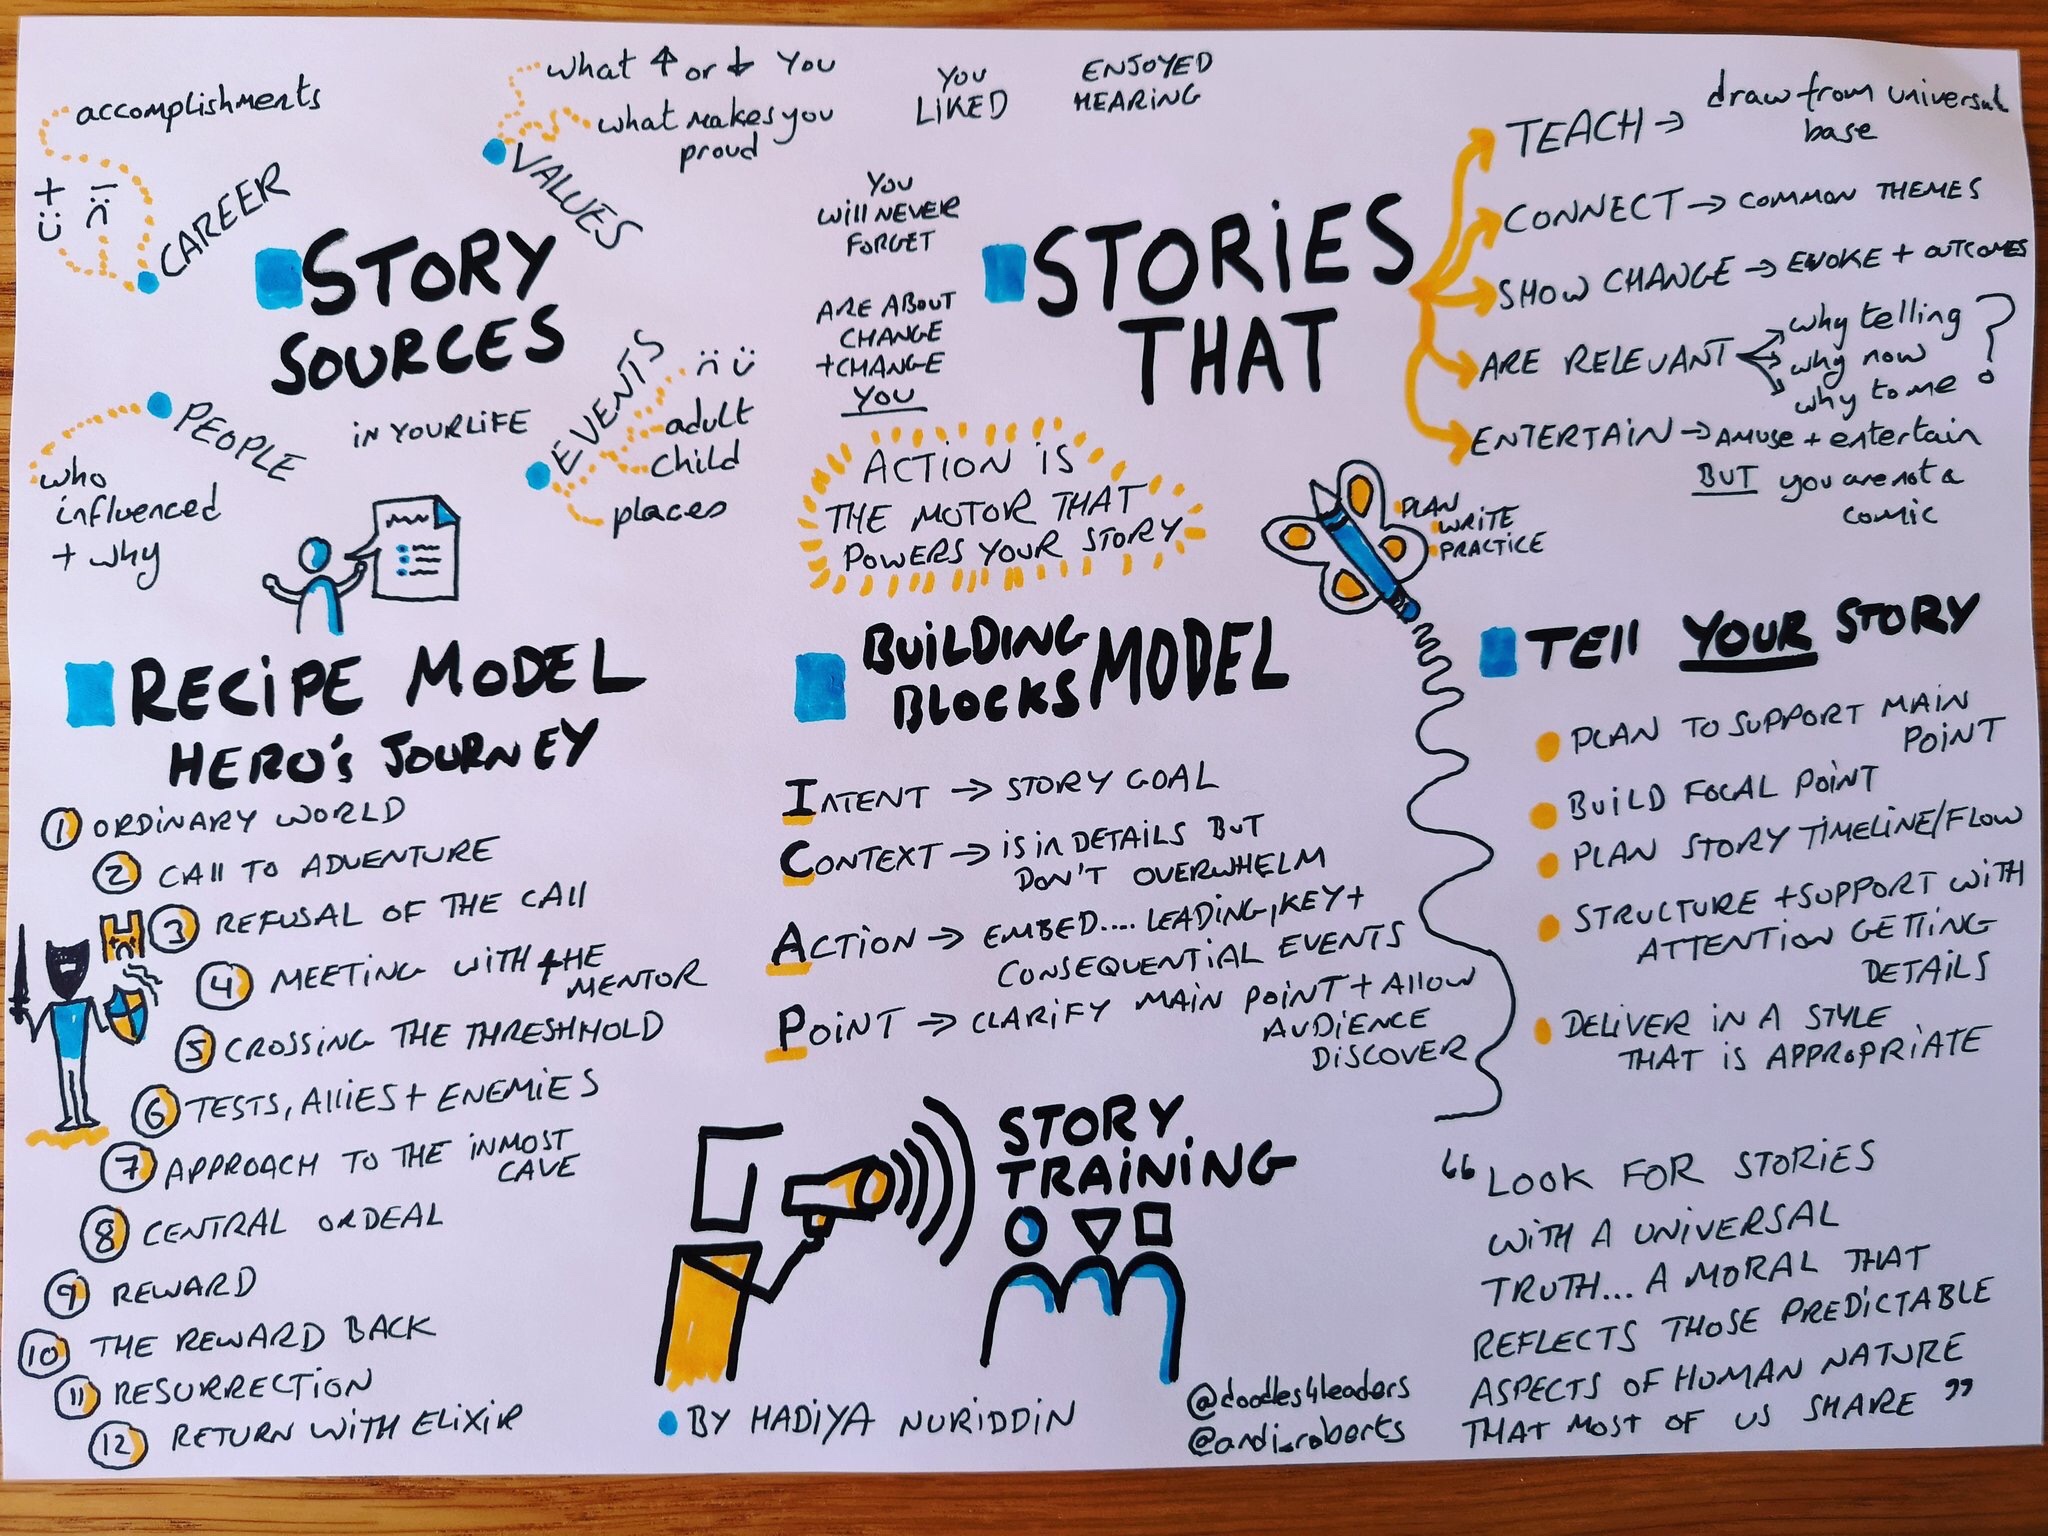 accomplishments
+
CAREER
what ↑ or ↓ You
what makes you
proud
VALUES
STORY
SOURCES
IN YOUR LIFE
PEOPLE
who
influenced
+ why
EVENTS
adult
child
places
YOU
LIKED
ENJOYED
HEARING
YOU
WILL NEVER
FORGET
ARE ABOUT
CHANGE
+CHANGE
YOU
STORIES
THAT
TEACH → draw from universal
base
CONNECT → COMMON THEMES
SHOW CHANGE → EVOKE + OUTCOMES
ARE RELEVANT
why telling
why now
why to me
?
ENTERTAIN → AMUSE + entertain
BUT you are not a
comic
ACTION IS
THE MOTOR THAT
POWERS YOUR STORY
PLAN
WRITE
PRACTICE
RECIPE MODEL
HERO'S JOURNEY
1 ORDINARY WORLD
2 CALL TO ADVENTURE
3 REFUSAL OF THE CALL
4 MEETING WITH THE
MENTOR
5 CROSSING THE THRESHHOLD
6 TESTS, ALLIES + ENEMIES
7 APPROACH TO THE INMOST
CAVE
8 CENTRAL ORDEAL
9 REWARD
10 THE REWARD BACK
11 RESURRECTION
12 RETURN WITH ELIXIR
BUILDING
BLOCKS MODEL
INTENT → STORY GOAL
CONTEXT → IS IN DETAILS BUT
DON'T OVERWHELM
ACTION → EMBED.... LEADING, KEY +
CONSEQUENTIAL EVENTS
POINT → CLARIFY MAIN POINT + ALLOW
AUDIENCE
DISCOVER
TELL YOUR STORY
PLAN TO SUPPORT MAIN
POINT
BUILD FOCAL POINT
PLAN STORY TIMELINE/FLOW
STRUCTURE + SUPPORT WITH
ATTENTION GETTING
DETAILS
DELIVER IN A STYLE
THAT IS APPROPRIATE
STORY
TRAINING
BY HADIYA NURIDDIN
@doodles4leaders
@andi_roberts
“ LOOK FOR STORIES
WITH A UNIVERSAL
TRUTH... A MORAL THAT
REFLECTS THOSE PREDICTABLE
ASPECTS OF HUMAN NATURE
THAT MOST OF US SHARE ”